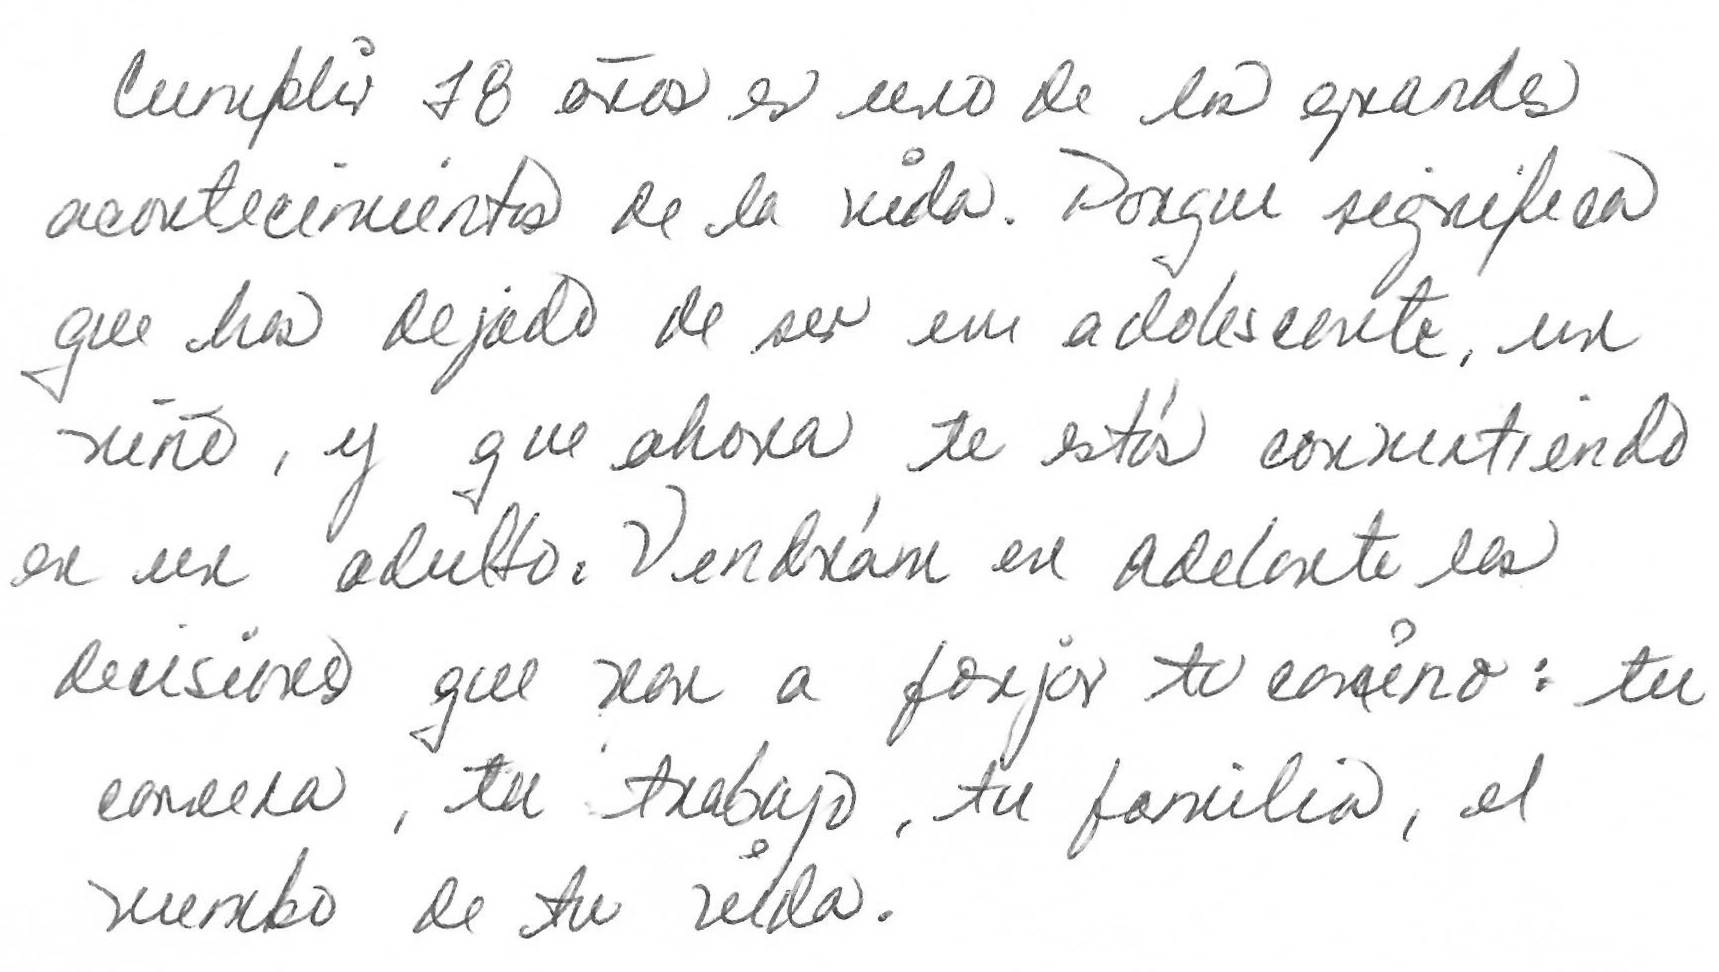 Cumplir 18 años es uno de los grandes
acontecimientos de la vida. Porque significa
que has dejado de ser un adolescente, un
niño, y que ahora te estás convirtiendo
en un adulto. Vendrán en adelante las
decisiones que van a forjar tu camino: tu
carrera, tu trabajo, tu familia, el
rumbo de tu vida.